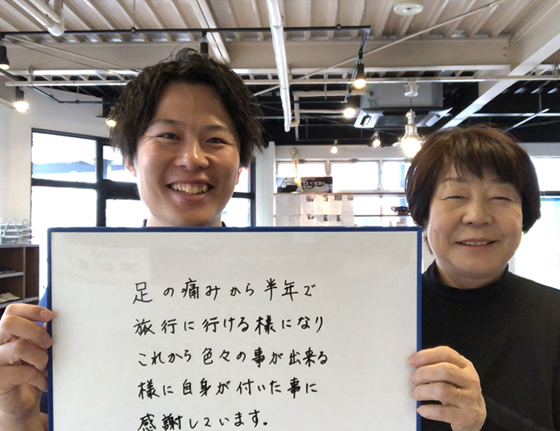 足の痛みから半年で
旅行に行ける様になり
これから色々の事が出来る
様に自身が付いた事に
感謝しています。